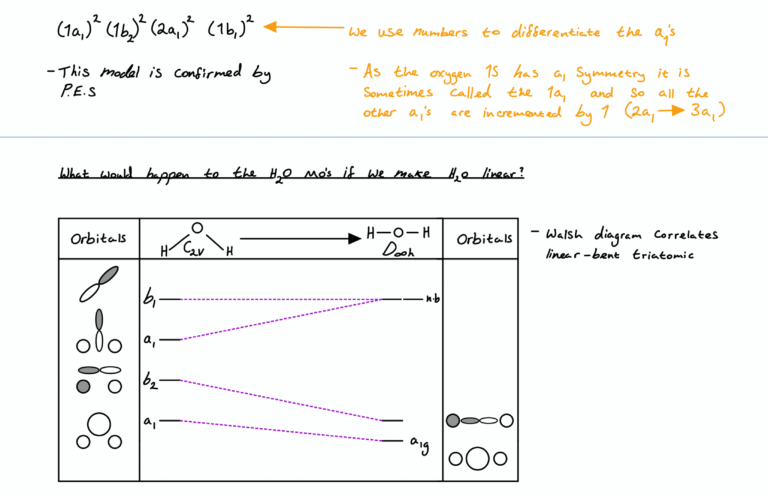 (1a₁)² (1b₂)² (2a₁)² (1b₁)²
We use numbers to differentiate the a₁'s
- This model is confirmed by
P.E.S
- As the oxygen 1S has a₁ Symmetry it is
Sometimes called the 1a₁ and so all the
other a₁'s are incremented by 1 (2a₁ → 3a₁)
What would happen to the H₂O MO's if we make H₂O linear?
Orbitals
O
H C₂ᵥ H
H-O-H
D∞h
Orbitals
- Walsh diagram Correlates
linear-bent triatomic
b₁
n.b
a₁
b₂
a₁
a₁g